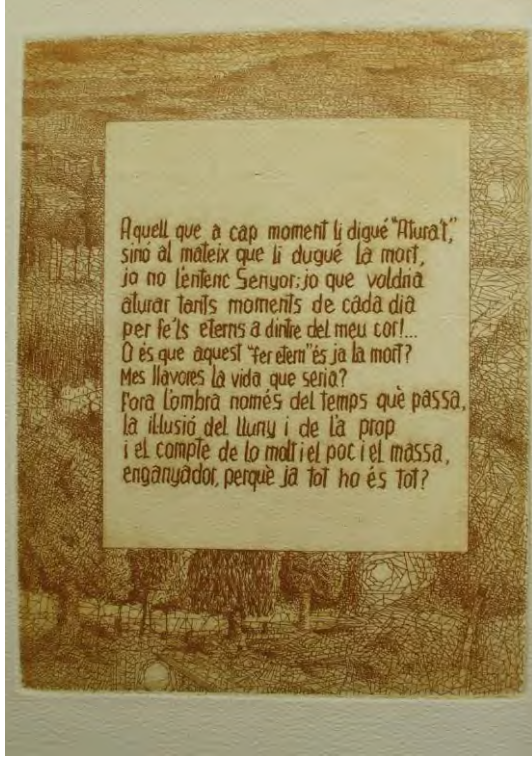 Aquell que a cap moment li digué "Atura't,"
sinó al mateix que li dugué la mort,
jo no l'entenc Senyor; jo que voldria
aturar tants moments de cada dia
per fe'ls eterns a dintre del meu cor!...
O és que aquest "fer etern" és ja la mort?
Mes llavores la vida que seria?
Fora l'ombra només del temps què passa,
la il·lusió del lluny i de la prop
i el compte de lo molt i el poc i el massa,
enganyador, perquè ja tot ho és tot?